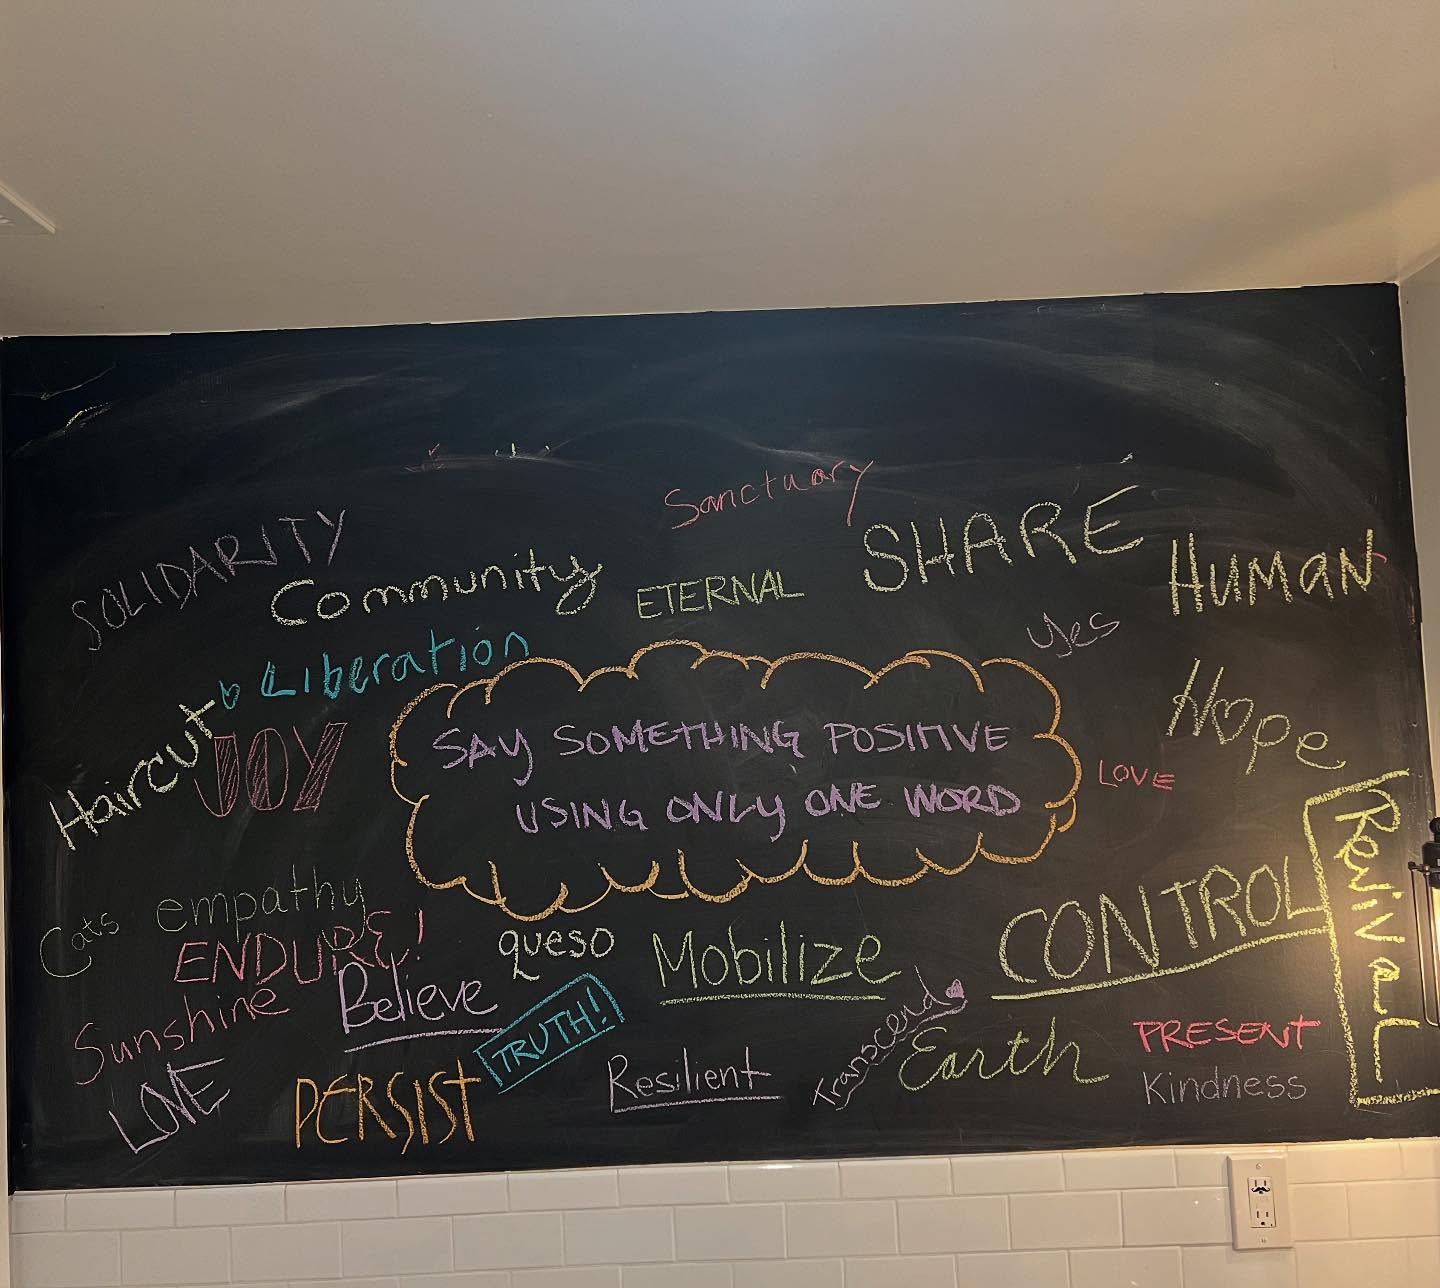 Sanctuary
SOLIDARITY
Community
ETERNAL
SHARE
HUMAN
Liberation
Yes
Haircut
JOY
SAY SOMETHING POSITIVE
USING ONLY ONE WORD
Hope
LOVE
Revival
CONTROL
Cats
empathy
ENDURE!
queso
Mobilize
Believe
Sunshine
TRUTH!
Transcend
Earth
PRESENT
LOVE
PERSIST
Resilient
Kindness